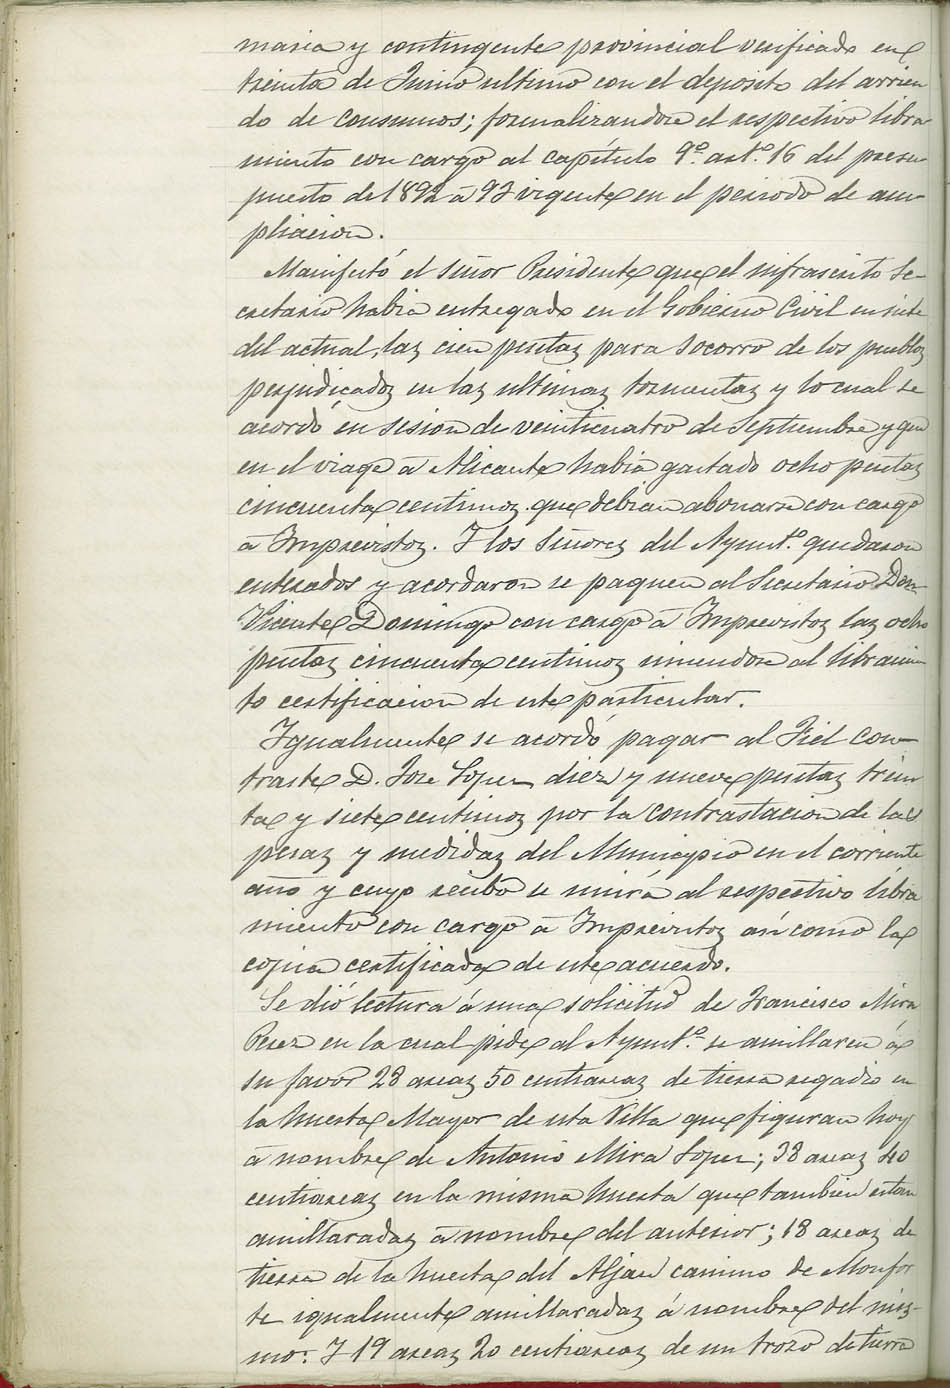 maria y contingente provincial verificado en
treinta de Junio ultimo con el deposito del arrien
do de consumos; formalizandose el respectivo libra
miento con cargo al capítulo 9º artº 16 del presu
puesto de 1892 á 93 vigente en el periodo de am
pliacion.
Manifestó el Señor Presidente que el infrascrito Se-
cretario habia entregado en el Gobierno Civil en siete
del actual, las cien pesetas para socorro de los pueblos
perjudicados en las ultimas tormentas y lo cual se
acordó en sesion de veinticuatro de Septiembre y que
en el viage á Alicante habia gastado ocho pesetas
cincuenta centimos que debian abonarse con cargo
á Imprevistos. Y los Señores del Ayuntº quedaron
enterados y acordaron se paguen al Secretario Don
Vicente Domingo con cargo á Imprevistos las ocho
pesetas cincuenta centimos uniendose al libramien
to certificacion de este particular.
Igualmente se acordó pagar al Fiel Con-
traste D. Jose Lopez diez y nueve pesetas trein
ta y siete centimos por la contrastacion de las
pesas y medidas del Municipio en el corriente
año y cuyo recibo se unirá al respectivo libra
miento con cargo á Imprevistos así como la
copia certificada de este acuerdo.
Se dió lectura á una solicitud de Francisco Mira
Perez en la cual pide al Ayuntº se amillaren á
su favor 28 areas 50 centiareas de tierra regadio en
la huerta Mayor de esta Villa que figuran hoy
á nombre de Antonio Mira Lopez; 38 areas 40
centiareas en la misma huerta que tambien estan
amillaradas á nombre del anterior; 18 areas de
tierra de la huerta del Aljau camino de Monfor
te igualmente amillaradas á nombre del mis-
mo. Y 19 areas 20 centiareas de un trozo de tierra